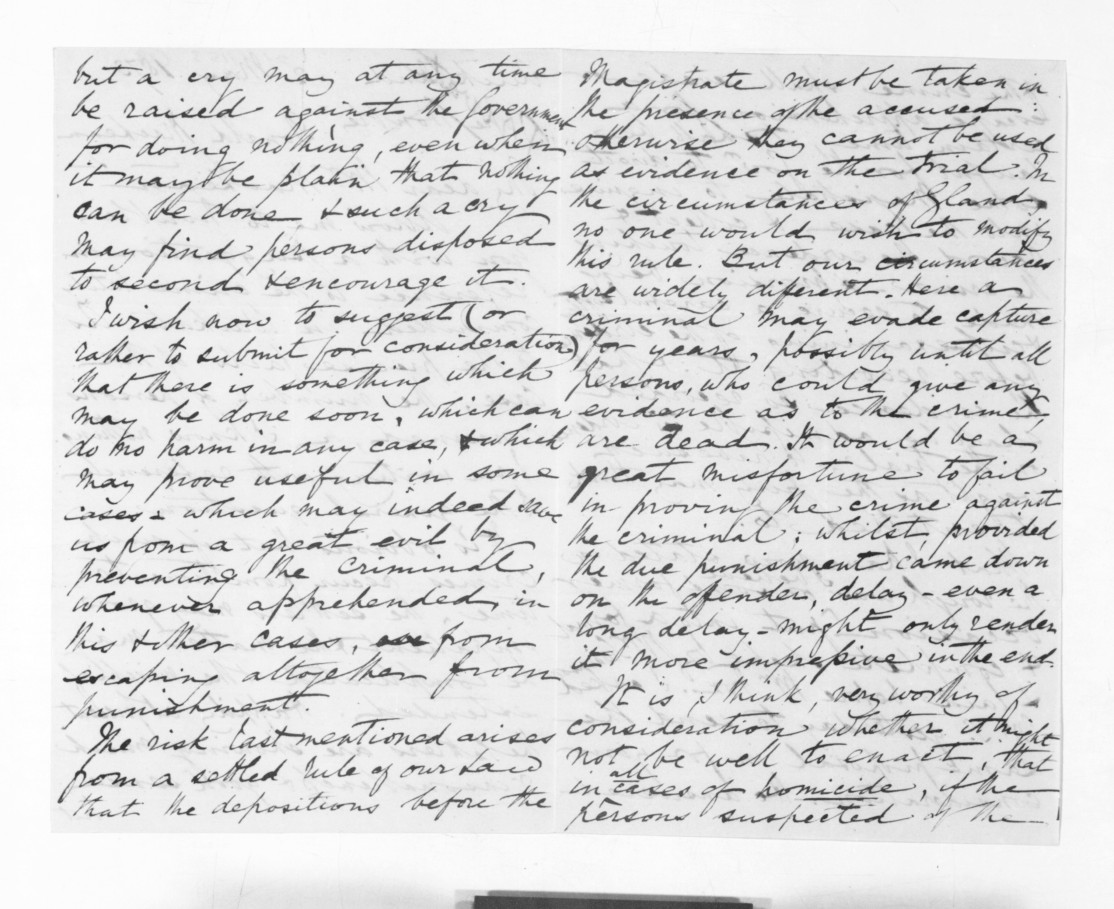 but a cry may at any time
be raised against the Government
for doing nothing, even when
it may be plain that nothing
can be done & such a cry
may find persons disposed
to second & encourage it.
I wish now to suggest (or
rather to submit for consideration)
that there is something which
may be done soon, which can
do no harm in any case, & which
may prove useful in some
cases - which may indeed save
us from a great evil by
preventing the criminal,
whenever apprehended, in
this & other cases, from
escaping altogether from
punishment.
The risk last mentioned arises
from a settled rule of our Law
that the depositions before the
Magistrate must be taken in
the presence of the accused
otherwise they cannot be used
as evidence on the trial. In
the circumstances of England,
no one would wish to modify
this rule. But our circumstances
are widely different. Here a
criminal may evade capture
for years, possibly until all
persons, who could give any
evidence as to the crime,
are dead. It would be a
great misfortune to fail
in proving the crime against
the criminal; whilst, provided
the due punishment came down
on the offender, delay - even a
long delay - might only render
it more impressive in the end.
It is, I think, very worthy of
consideration whether it might
not be well to enact, that
in all cases of homicide, if the
persons suspected of the